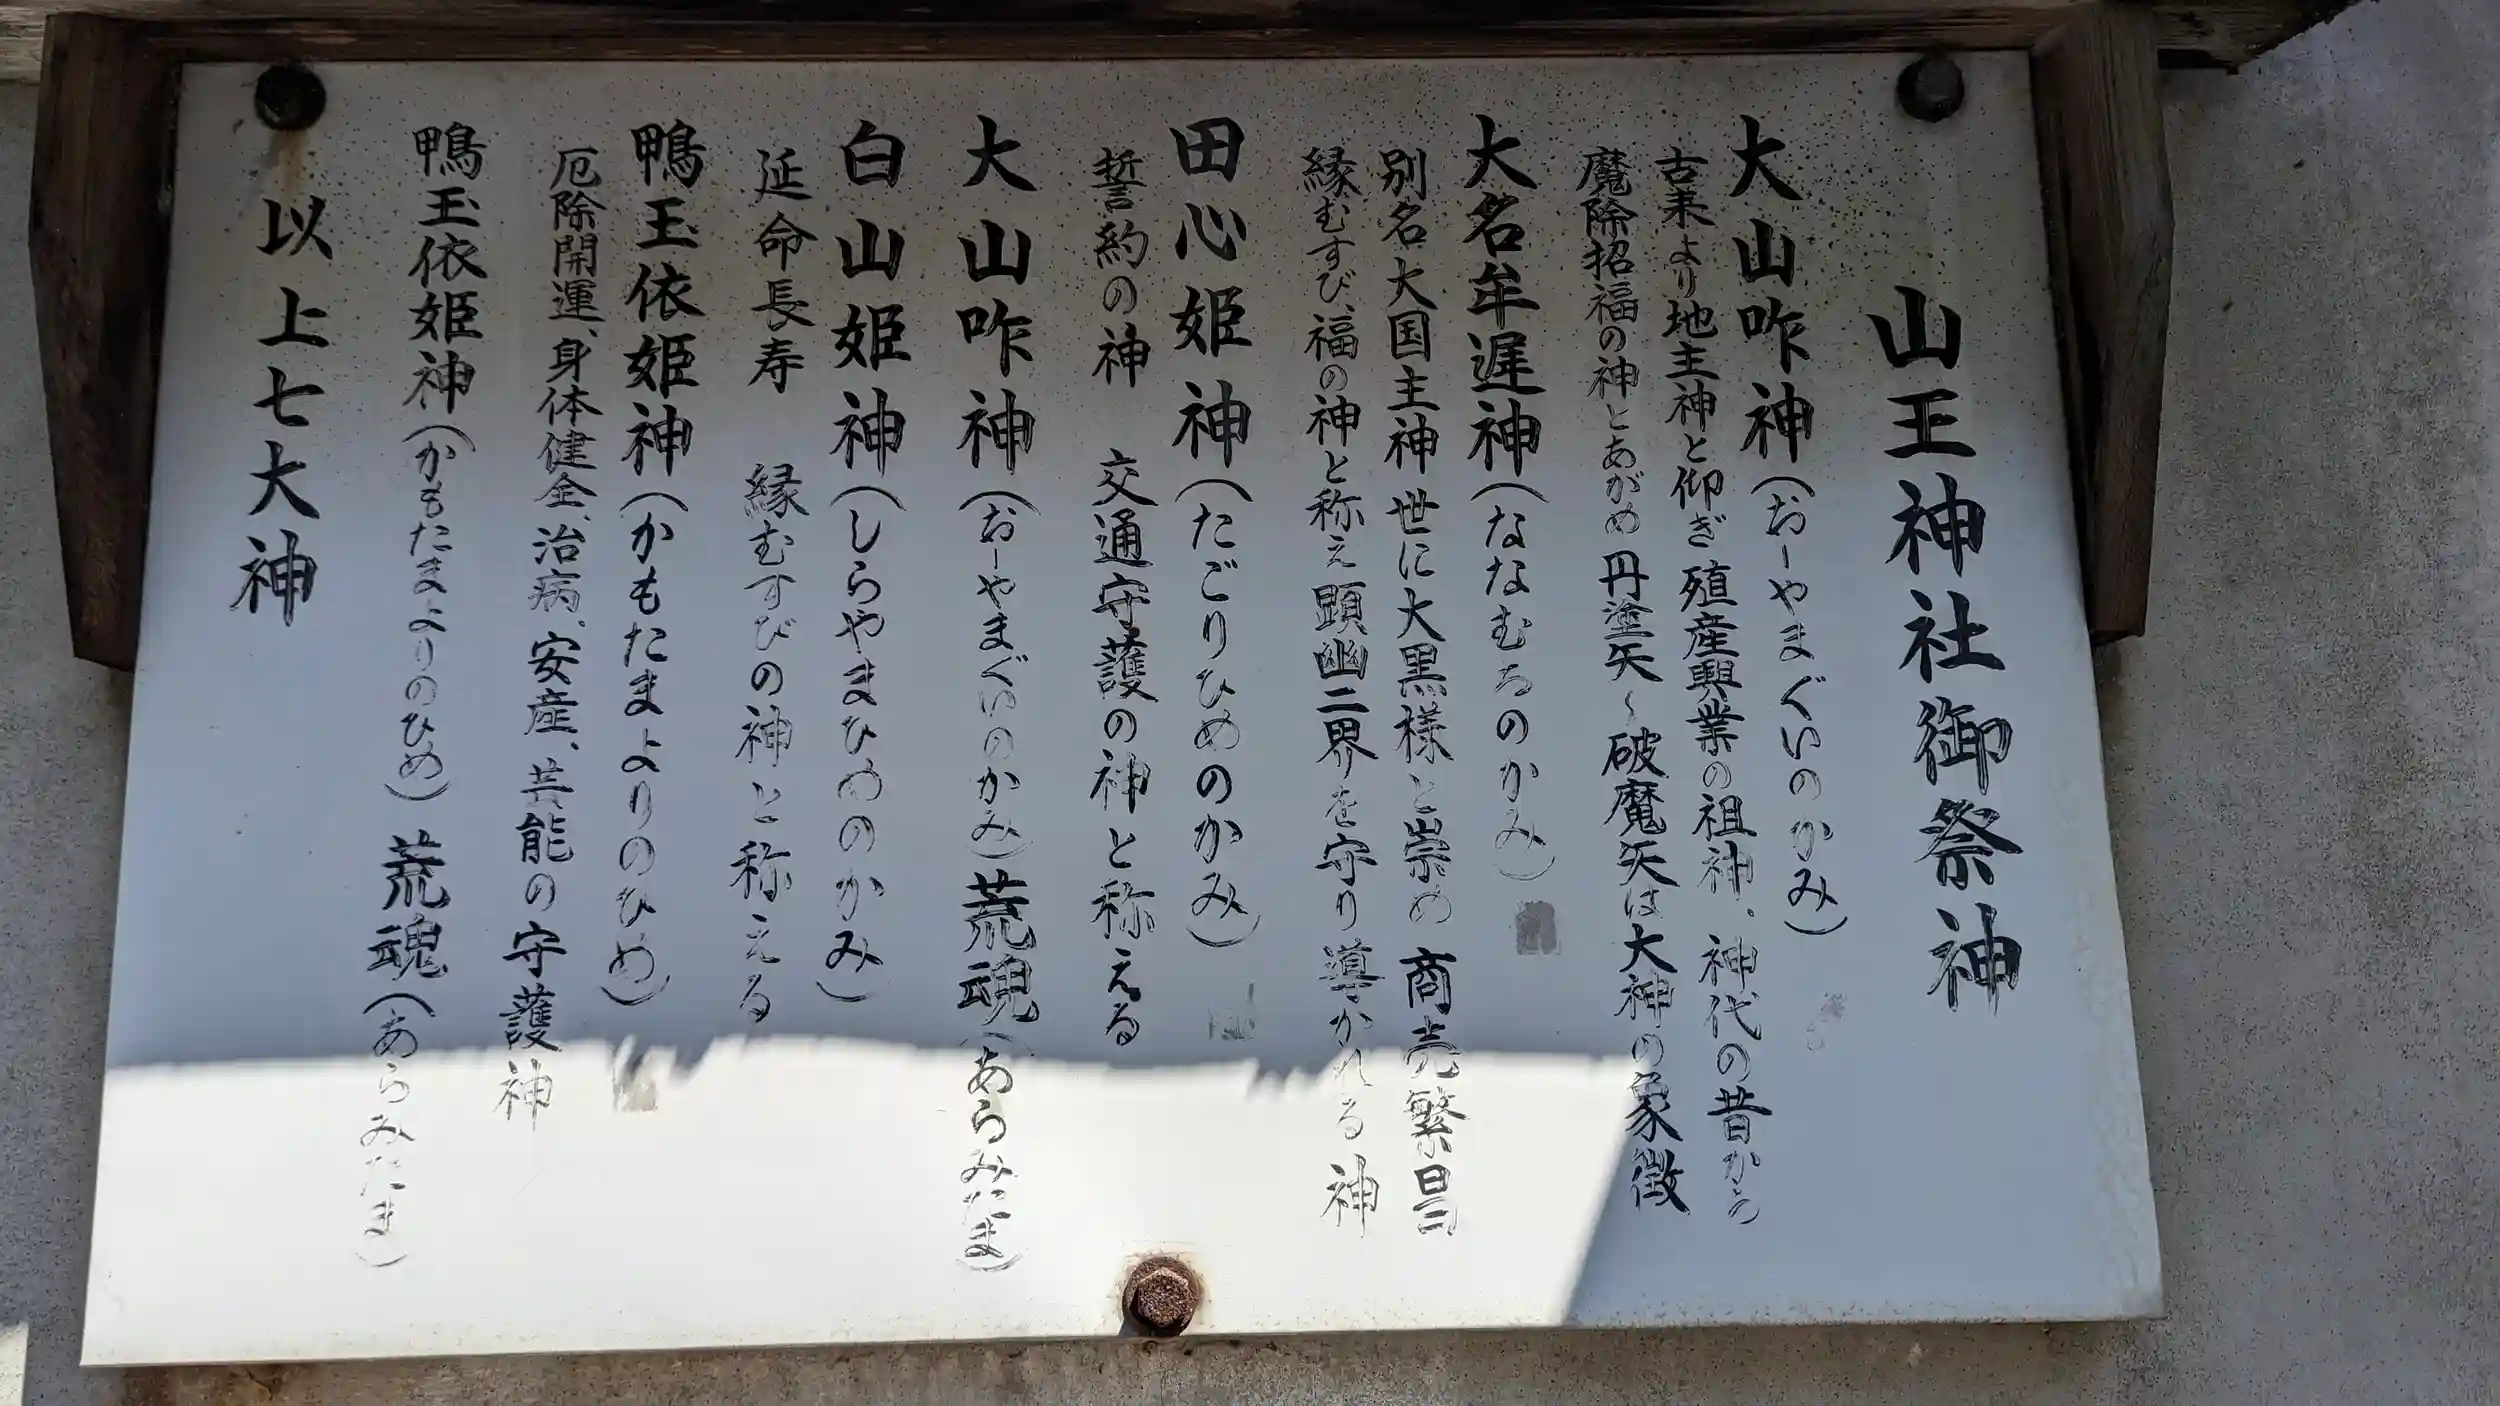 山王神社御祭神
大山咋神(おーやまぐいのかみ)
古来より地主神と仰ぎ殖産興業の祖神。神代の昔から
魔除招福の神とあがめ丹塗矢〜破魔矢は大神の象徴
大名牟遅神(ななむちのかみ)
別名大国主神 世に大黒様と崇め 商売繁昌
縁むすび、福の神と称え顕幽二界を守り導かれる神
田心姫神(たごりひめのかみ)
誓約の神 交通守護の神と称える
大山咋神(おーやまぐいのかみ)荒魂(あらみたま)
白山姫神(しらやまひめのかみ)
延命長寿 縁むすびの神と称える
鴨玉依姫神(かもたまよりのひめ)
厄除開運、身体健全、治病、安産、芸能の守護神
鴨玉依姫神(かもたまよりのひめ)荒魂(あらみたま)
以上七大神